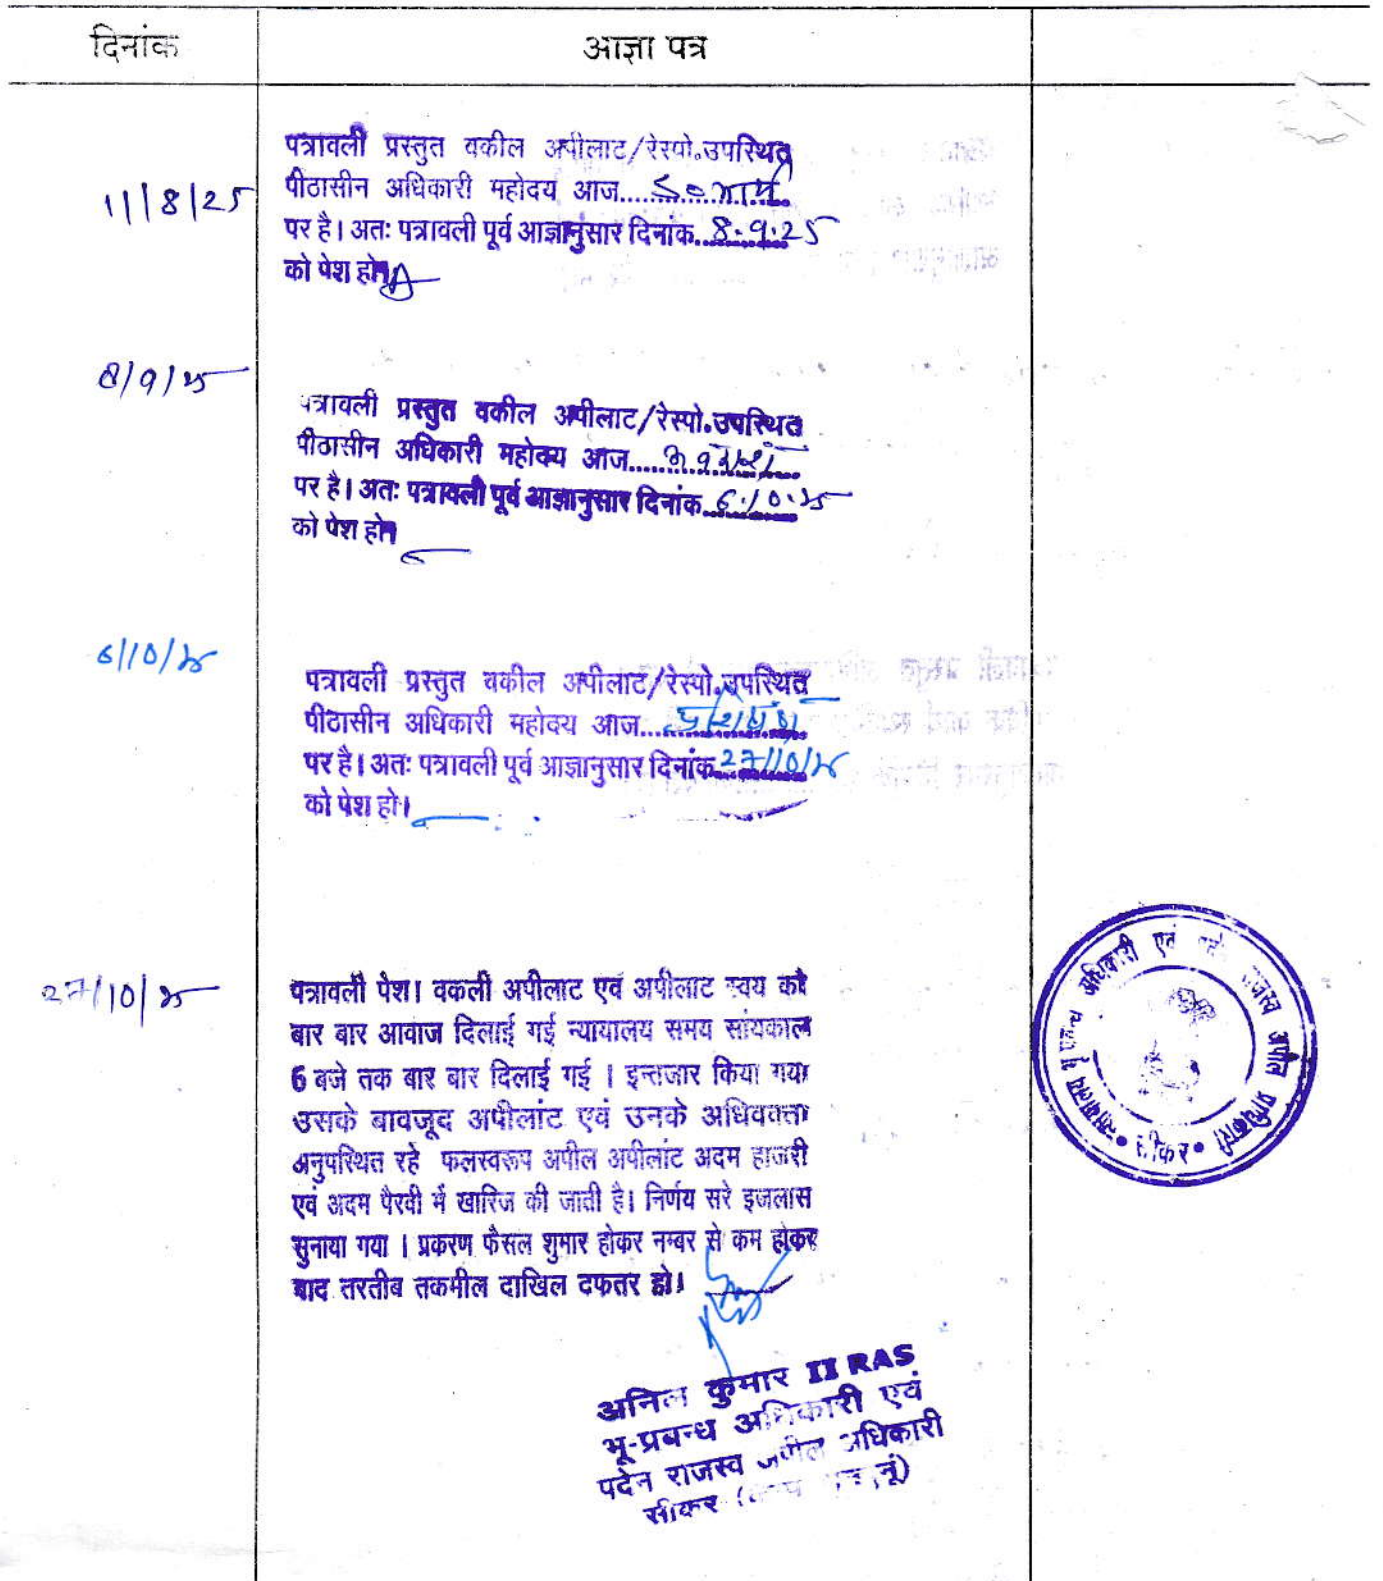 दिनांक
आज्ञा पत्र
11/8/25
पत्रावली प्रस्तुत वकील अपीलाट/रेस्पो.उपस्थित
पीठासीन अधिकारी महोदय आज......
पर है। अतः पत्रावली पूर्व आज्ञानुसार दिनांक 8.9.25
को पेश हो।
8/9/25
पत्रावली प्रस्तुत वकील अपीलाट/रेस्पो.उपस्थित
पीठासीन अधिकारी महोदय आज...... अवकाश
पर है। अतः पत्रावली पूर्व आज्ञानुसार दिनांक 6.10.25
को पेश हो।
6/10/25
पत्रावली प्रस्तुत वकील अपीलाट/रेस्पो.उपस्थित
पीठासीन अधिकारी महोदय आज......
पर है। अतः पत्रावली पूर्व आज्ञानुसार दिनांक 27/10/25
को पेश हो।
27/10/25
पत्रावली पेश। वकली अपीलाट एवं अपीलाट स्वय को
बार बार आवाज दिलाई गई न्यायालय समय सांयकाल
6 बजे तक बार बार दिलाई गई । इन्तजार किया गया
उसके बावजूद अपीलांट एवं उनके अधिवक्ता
अनुपस्थित रहे फलस्वरूप अपील अपीलांट अदम हाजरी
एवं अदम पैरवी में खारिज की जाती है। निर्णय सरे इजलास
सुनाया गया । प्रकरण फैसल शुमार होकर नम्बर से कम होकर
बाद तरतीब तकमील दाखिल दफतर हो।
अनिल कुमार II RAS
भू-प्रबन्ध अधिकारी एवं
पदेन राजस्व अपील अधिकारी
सीकर
न्यायालय भू प्रबन्ध अधिकारी एवं पदेन राजस्व अपील प्राधिकारी
सीकर